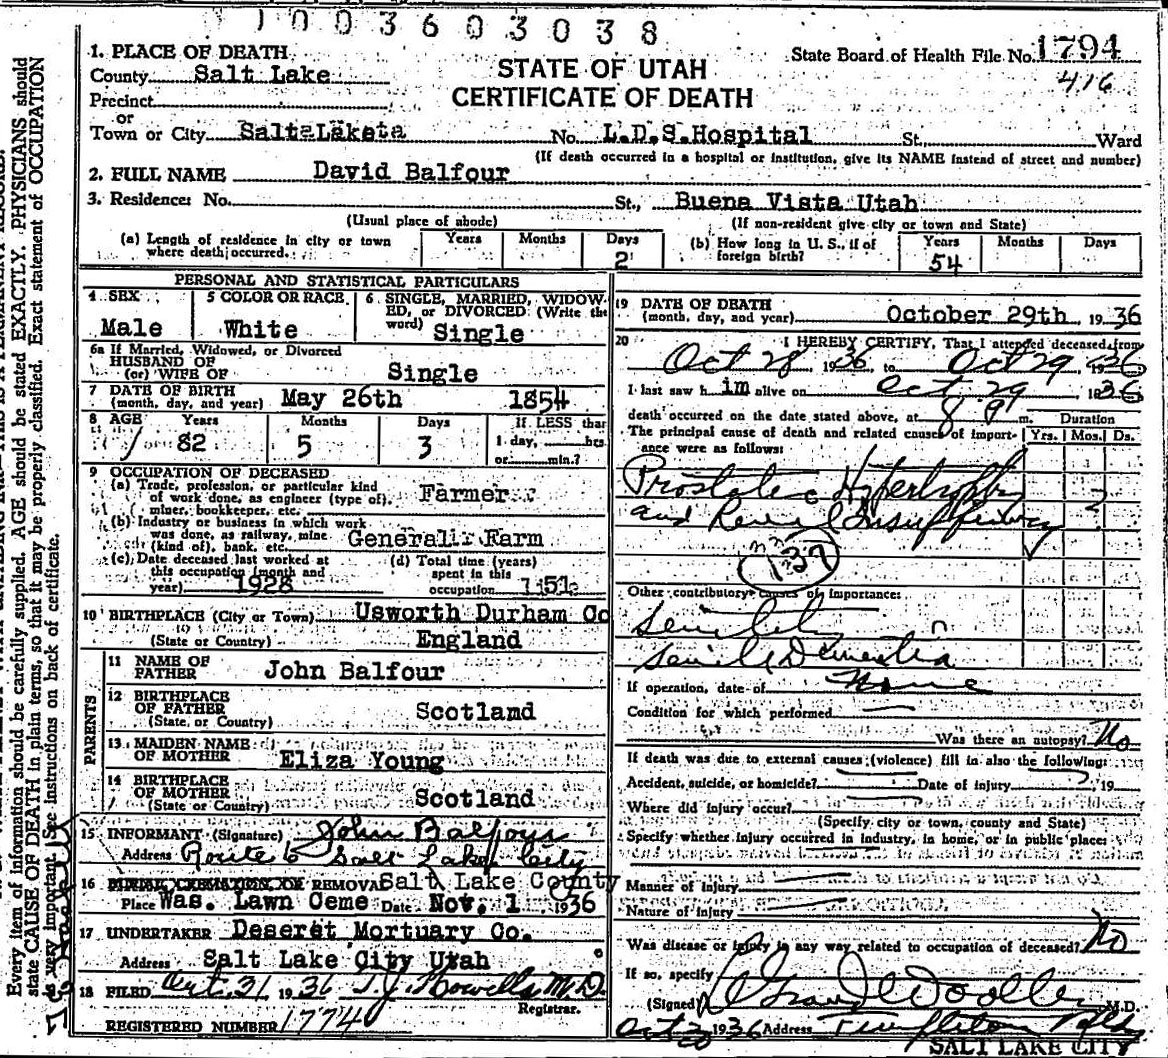 1003603038
1. PLACE OF DEATH
State Board of Health File No. 1794
County Salt Lake
STATE OF UTAH
416
Precinct
CERTIFICATE OF DEATH
or
Town or City Salt Lake No. L.D.S. Hospital St., Ward
(If death occurred in a hospital or institution, give its NAME instead of street and number)
2. FULL NAME David Balfour
3. Residence: No. St., Buena Vista Utah
(Usual place of abode) (If non-resident give city or town and State)
(a) Length of residence in city or town where death occurred. Years Months Days 2
(b) How long in U. S., if of foreign birth? Years 54 Months Days
PERSONAL AND STATISTICAL PARTICULARS
4 SEX Male
5 COLOR OR RACE White
6 SINGLE, MARRIED, WIDOWED, OR DIVORCED (Write the word) Single
6a If Married, Widowed, or Divorced
HUSBAND OF
(or) WIFE OF Single
7 DATE OF BIRTH
(month, day, and year) May 26th 1854
8 AGE Years 82 Months 5 Days 3 If LESS than
1 day, hrs.
or min.?
9 OCCUPATION OF DECEASED
(a) Trade, profession, or particular kind
of work done, as engineer (type of), Farmer
miner, bookkeeper, etc.
(b) Industry or business in which work
was done, as railway, mine
(kind of), bank, etc. General Farm
(c) Date deceased last worked at
this occupation (month and
year) 1928
(d) Total time (years)
spent in this
occupation
10 BIRTHPLACE (City or Town) Usworth Durham Co
(State or Country) England
PARENTS
11 NAME OF
FATHER John Balfour
12 BIRTHPLACE
OF FATHER Scotlamd
(State or Country)
13 MAIDEN NAME
OF MOTHER Eliza Young
14 BIRTHPLACE
OF MOTHER
(State or Country) Scotland
15 INFORMANT (Signature) John Balfour
Address Route 6 Salt Lake City
16 BURIAL, CREMATION, OR REMOVAL Salt Lake County
Place Was. Lawn Ceme Date Nov. 1 1936
17 UNDERTAKER Deseret Mortuary Co.
Address Salt Lake City Utah
18 FILED Oct. 31 1936 T.J. Howells M.D.
Registrar.
REGISTERED NUMBER 1774
19 DATE OF DEATH
(month, day, and year) October 29th, 1936
20 I HEREBY CERTIFY, That I attended deceased from
Oct 28 1936 to Oct 29 1936
I last saw him alive on Oct 29 1936
death occurred on the date stated above, at 8 P m. Duration
The principal cause of death and related causes of importance were as follows: Yrs. Mos. Ds.
Prostatic Hypertrophy 2
and Renal Insufficiency
137
Other contributory causes of importance:
Senility
Senile Dementia
If operation, date of None
Condition for which performed
Was there an autopsy? No
If death was due to external causes (violence) fill in also the following:
Accident, suicide, or homicide? Date of injury 19
Where did injury occur?
(Specify city or town, county and State)
Specify whether injury occurred in industry, in home, or in public place:
Manner of injury
Nature of injury
Was disease or injury in any way related to occupation of deceased? No
If so, specify
(Signed) M.D.
1936 Address Templeton Bldg
SALT LAKE CITY
Every item of information should be carefully supplied. AGE should be stated EXACTLY. PHYSICIANS should
state CAUSE OF DEATH in plain terms, so that it may be properly classified. Exact statement of OCCUPATION
is very important. See instructions on back of certificate.